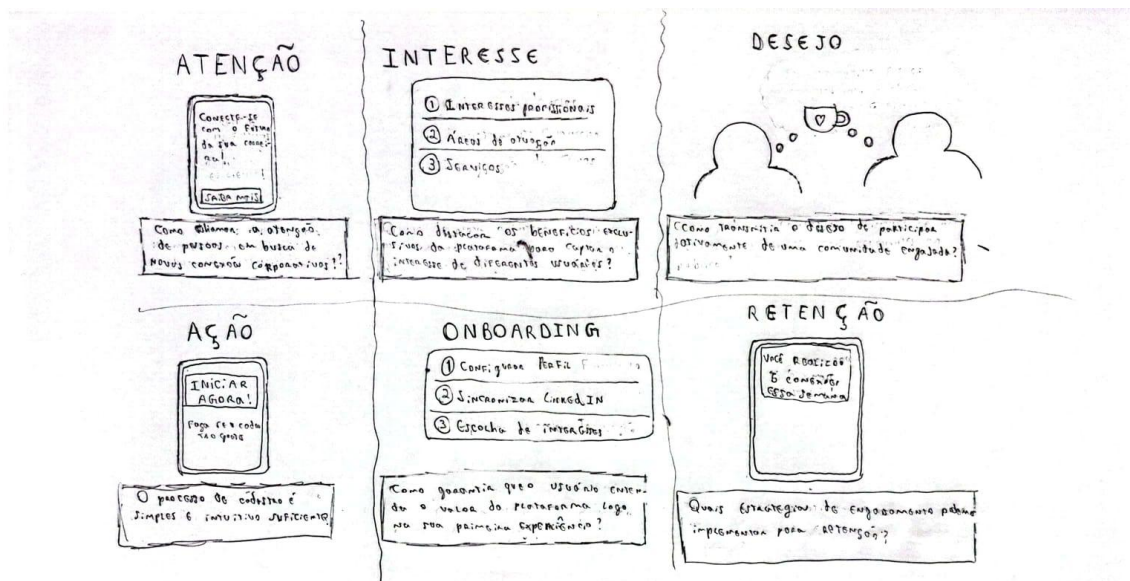 ATENÇÃO
CONECTE-SE
com o Futuro
da sua carrei-
ra!
SAIBA MAIS
Como chamar a atenção
de pessoas em busca de
novas conexões corporativas?
INTERESSE
① INTERESSES profissionais
② Áreas de atuação
③ SERVIÇOS
Como destacar os benefícios exclu-
sivos da plataforma para captar o
interesse de diferentes usuários?
DESEJO
Como transmitir o desejo de participar
ativamente de uma comunidade engajada?
AÇÃO
INICIAR
AGORA!
Faça seu cadas
tro
O processo de cadastro é
simples e intuitivo suficiente
ONBOARDING
① Configurar Perfil
② Sincronizar LINKEDIN
③ Escolha de interesses
Como garantir que o usuário enten-
da o valor da plataforma logo
na sua primeira experiência?
RETENÇÃO
VOCÊ REALIZOU
CONEXÕES
ESSA SEMANA
Quais estratégias de engajamento podemos
implementar para RETENÇÃO?